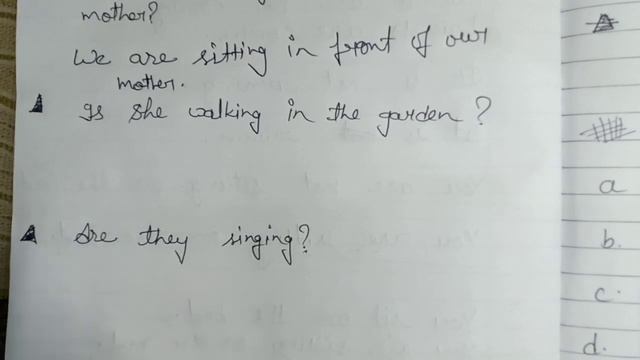 mother?
We are sitting in front of our
mother.
Is she walking in the garden?
Are they singing?
a
b.
c.
d.